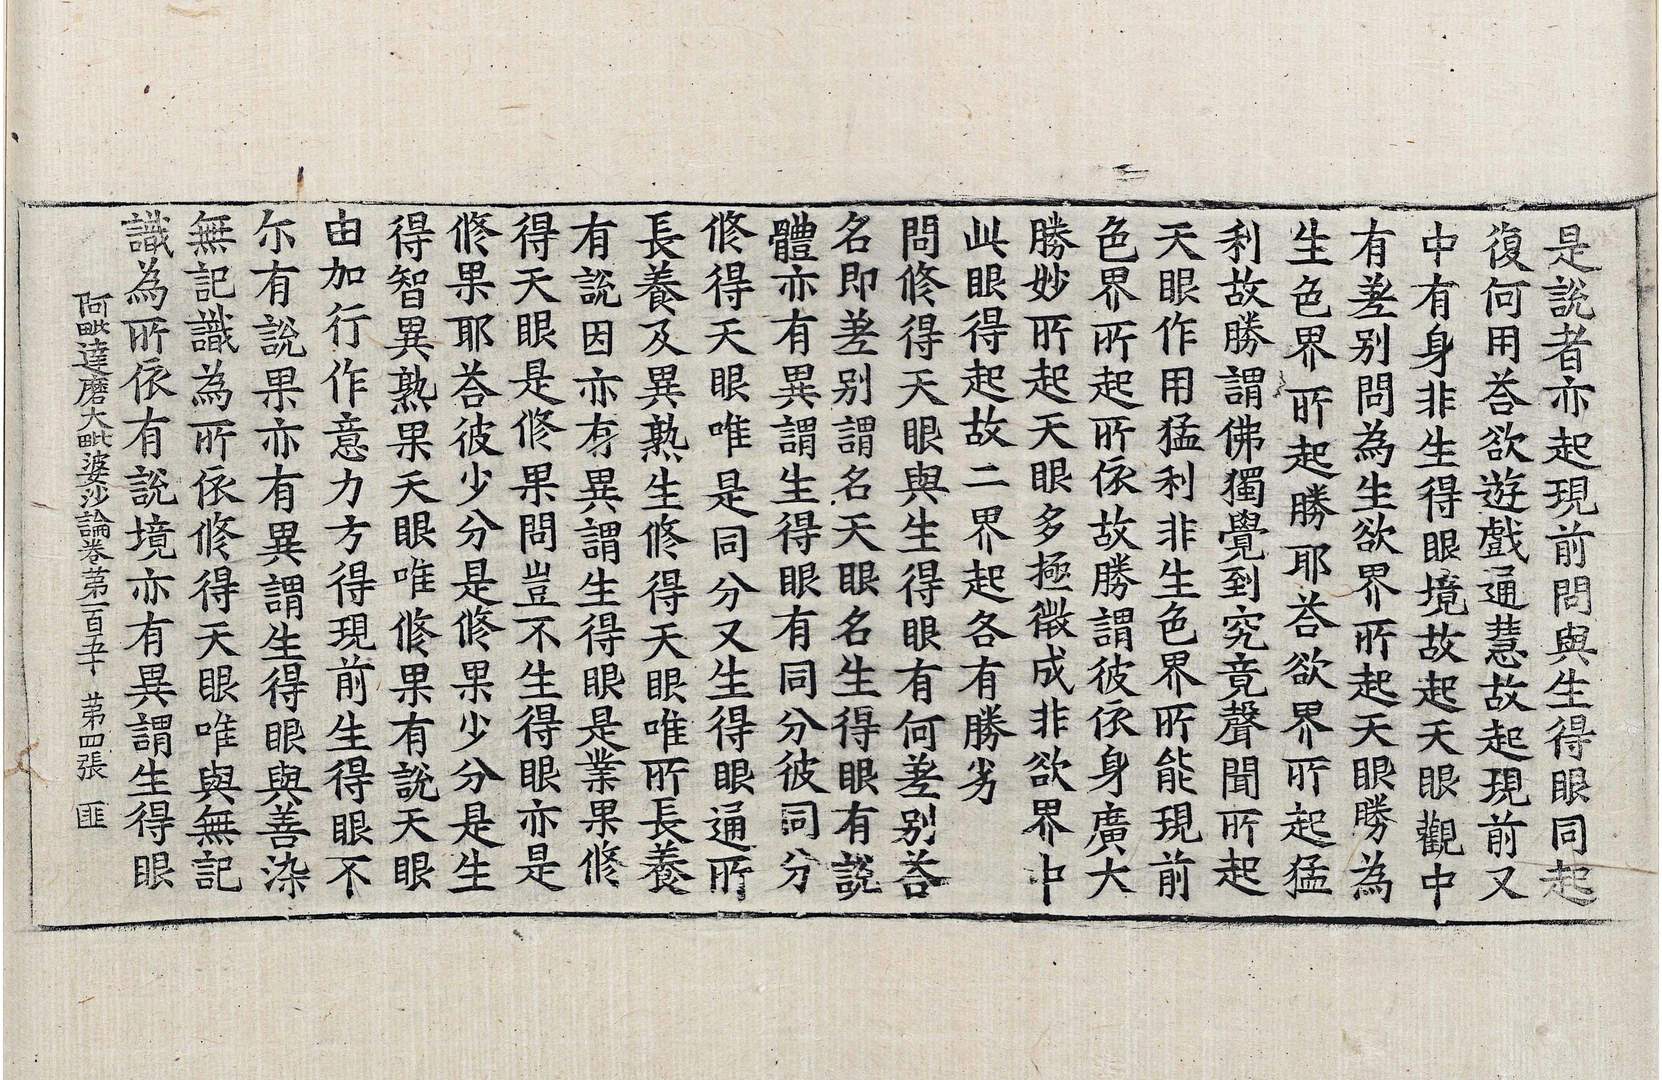 是說者亦起現前問與生得眼同起
復何用荅欲遊戲通慧故起現前又
中有身非生得眼境故起天眼觀中
有差别問為生欲界所起天眼勝為
生色界所起勝耶荅欲界所起猛
利故勝謂佛獨覺到究竟聲聞所起
天眼作用猛利非生色界所能現前
色界所起所依故勝謂彼依身廣大
勝妙所起天眼多極微成非欲界中
此眼得起故二界起各有勝劣
問修得天眼與生得眼有何差别荅
名即差别謂名天眼名生得眼有說
體亦有異謂生得眼有同分彼同分
修得天眼唯是同分又生得眼通所
長養及異熟生修得天眼唯所長養
有說因亦有異謂生得眼是業果修
得天眼是修果問豈不生得眼亦是
修果耶荅彼少分是修果少分是生
得智異熟果天眼唯修果有說天眼
由加行作意力方得現前生得眼不
尒有說果亦有異謂生得眼與善染
無記識為所依修得天眼唯與無記
識為所依有說境亦有異謂生得眼
阿毗達磨大毗婆沙論卷第一百五十　第四張　匪